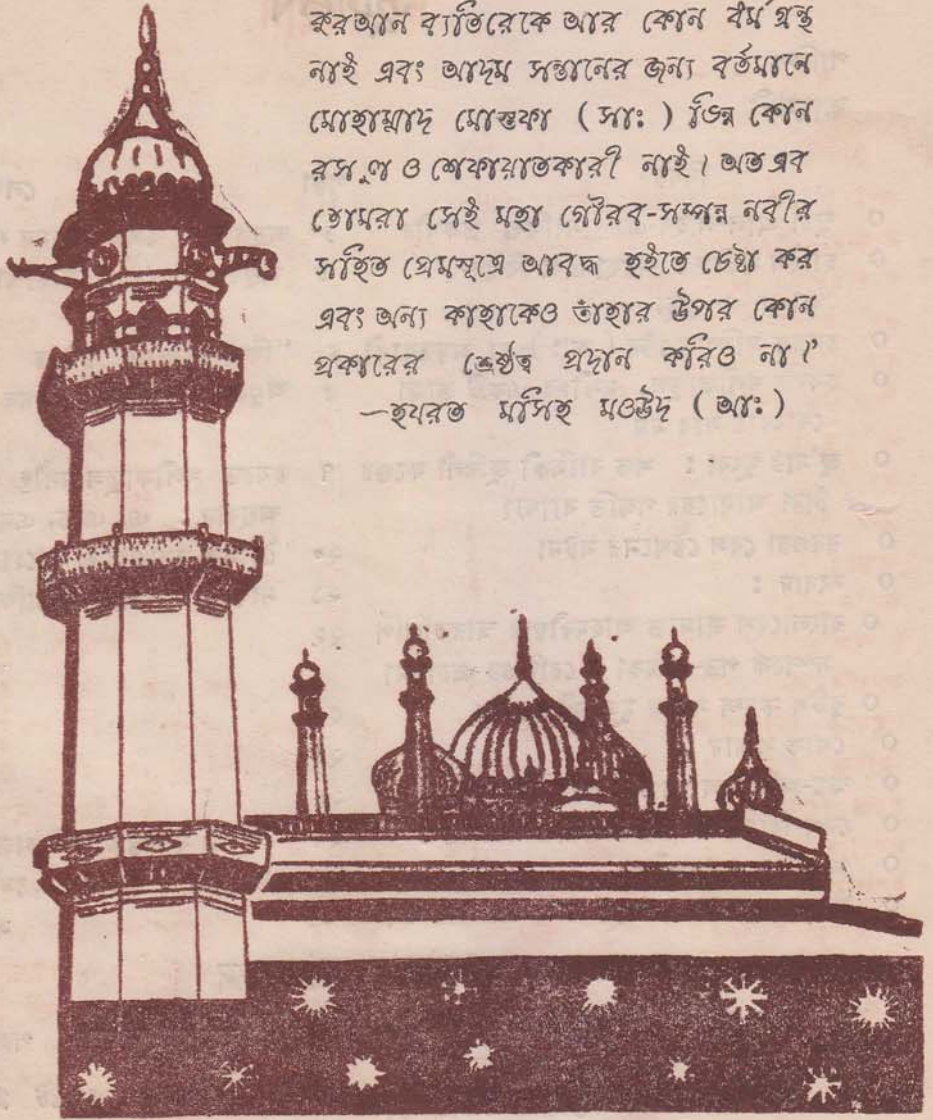 কুরআন ব্যতিরেকে আর কোন ধর্ম গ্রন্থ
নাই এবং আদম সন্তানের জন্য বর্তমানে
মোহাম্মাদ মোস্তফা ( সাঃ ) ভিন্ন কোন
রসূল ও শেফায়াতকারী নাই। অতএব
তোমরা সেই মহা গৌরব-সম্পন্ন নবীর
সহিত প্রেমসূত্রে আবদ্ধ হইতে চেষ্টা কর
এবং অন্য কাহাকেও তাঁহার উপর কোন
প্রকারের শ্রেষ্ঠত্ব প্রদান করিও না।’
—হযরত মসিহ মওউদ ( আঃ )